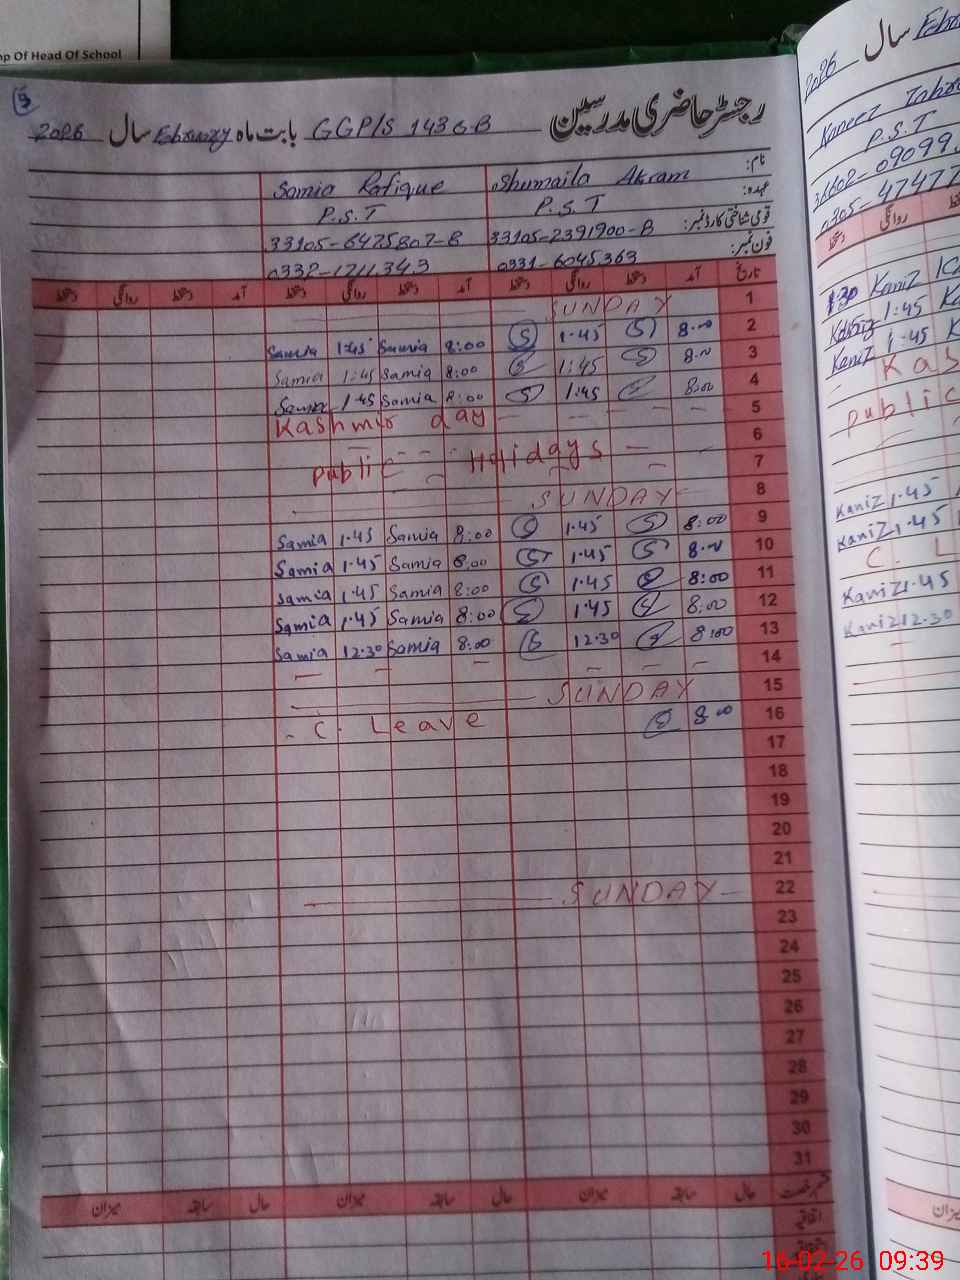 mp Of Head Of School
9
رجسٹر حاضری مدرسین GGP/S 143 GB بابت ماہ February سال 2026
نام: Shumaila Akram Samia Rafique
عہدہ: P.S.T P.S.T
قومی شناختی کارڈ نمبر: 33105-2391900-8 33105-6475807-8
فون نمبر: 0331-6045369 0332-1711343
تاریخ آمد دستخط روانگی دستخط آمد دستخط روانگی دستخط آمد دستخط روانگی دستخط
1 SUNDAY
2 8:00 (S) 1.45 (S) 8:00 Samia 1.45 Samia
3 8:00 (S) 1:45 (S) 8:00 Samia 1:45 Samia
4 8:00 (S) 1.45 (S) 8:00 Samia 1.45 Samia
5 Kashmir day
6
7 Public Holidays
8 SUNDAY
9 8:00 (S) 1.45 (S) 8:00 Samia 1.45 Samia
10 8:00 (S) 1.45 (S) 8:00 Samia 1.45 Samia
11 8:00 (S) 1.45 (S) 8:00 Samia 1.45 Samia
12 8:00 (S) 1.45 (S) 8:00 Samia 1.45 Samia
13 8:00 (S) 12.30 (S) 8:00 Samia 12.30 Samia
14
15 SUNDAY
16 8:00 (S) C. Leave
17
18
19
20
21
22 SUNDAY
23
24
25
26
27
28
29
30
31
حال سابقہ میزان حال سابقہ میزان حال سابقہ میزان
اتفاقیہ
سال
2026
Kaneez
P.S.T
روانگی دستخط
1:30 Kaniz
1:45
Kaniz 1:45
Kas
Public
Kaniz 1.45
Kaniz 1.45
C. L
Kaniz 1.45
Kaniz 12.30
میزان
16-02-26 09:39